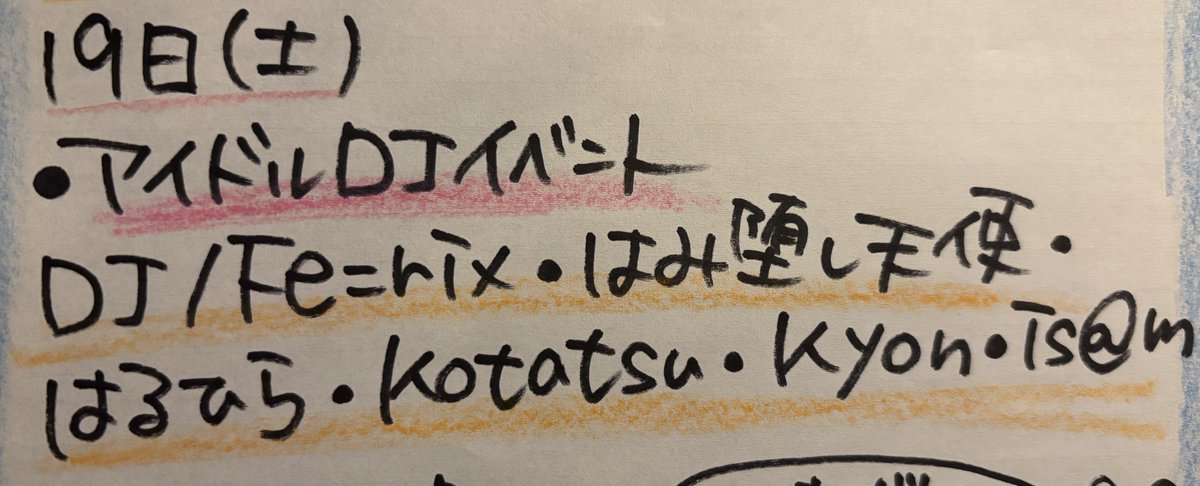 19日(土)
•アイドルDJイベント
DJ/Fe=rix・はみ堕し天使・
はるひら・kotatsu・Kyon・is@m